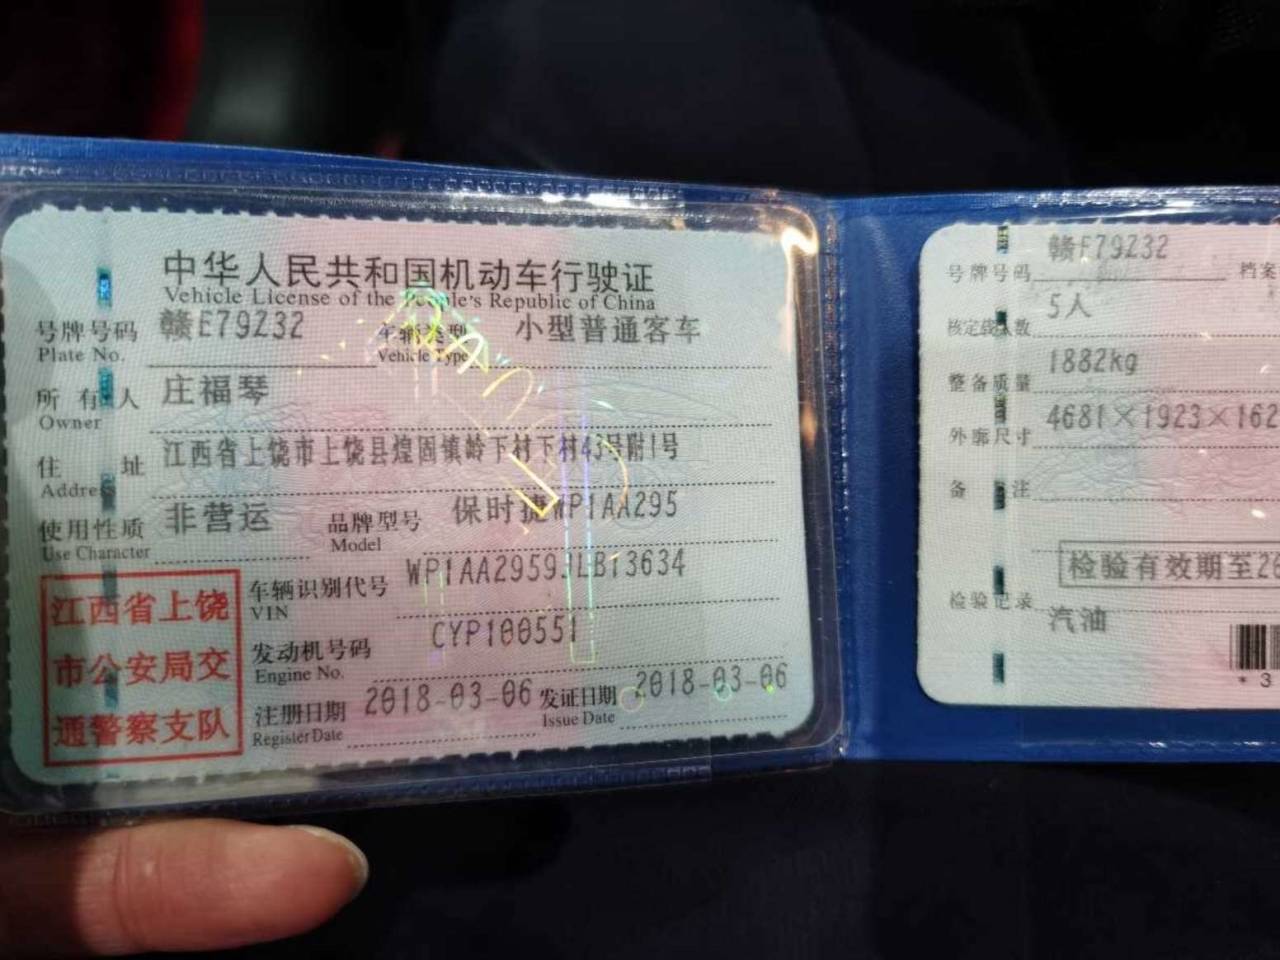 中华人民共和国机动车行驶证
Vehicle License of the People's Republic of China
号牌号码 赣E79Z32 车辆类型 小型普通客车
Plate No. Vehicle Type
所有人 庄福琴
Owner
住址 江西省上饶市上饶县煌固镇岭下村下村43号附1号
Address
使用性质 非营运 品牌型号 保时捷WP1AA295
Use Character Model
车辆识别代号 WP1AA2959JLB13634
VIN
发动机号码 CYP100551
Engine No.
注册日期 2018-03-06 发证日期 2018-03-06
Register Date Issue Date
江西省上饶
市公安局交
通警察支队
号牌号码 赣E79Z32 档案
核定载人数 5人
整备质量 1882kg
外廓尺寸 4681×1923×162
备注
检验有效期至20
检验记录
汽油
* 3